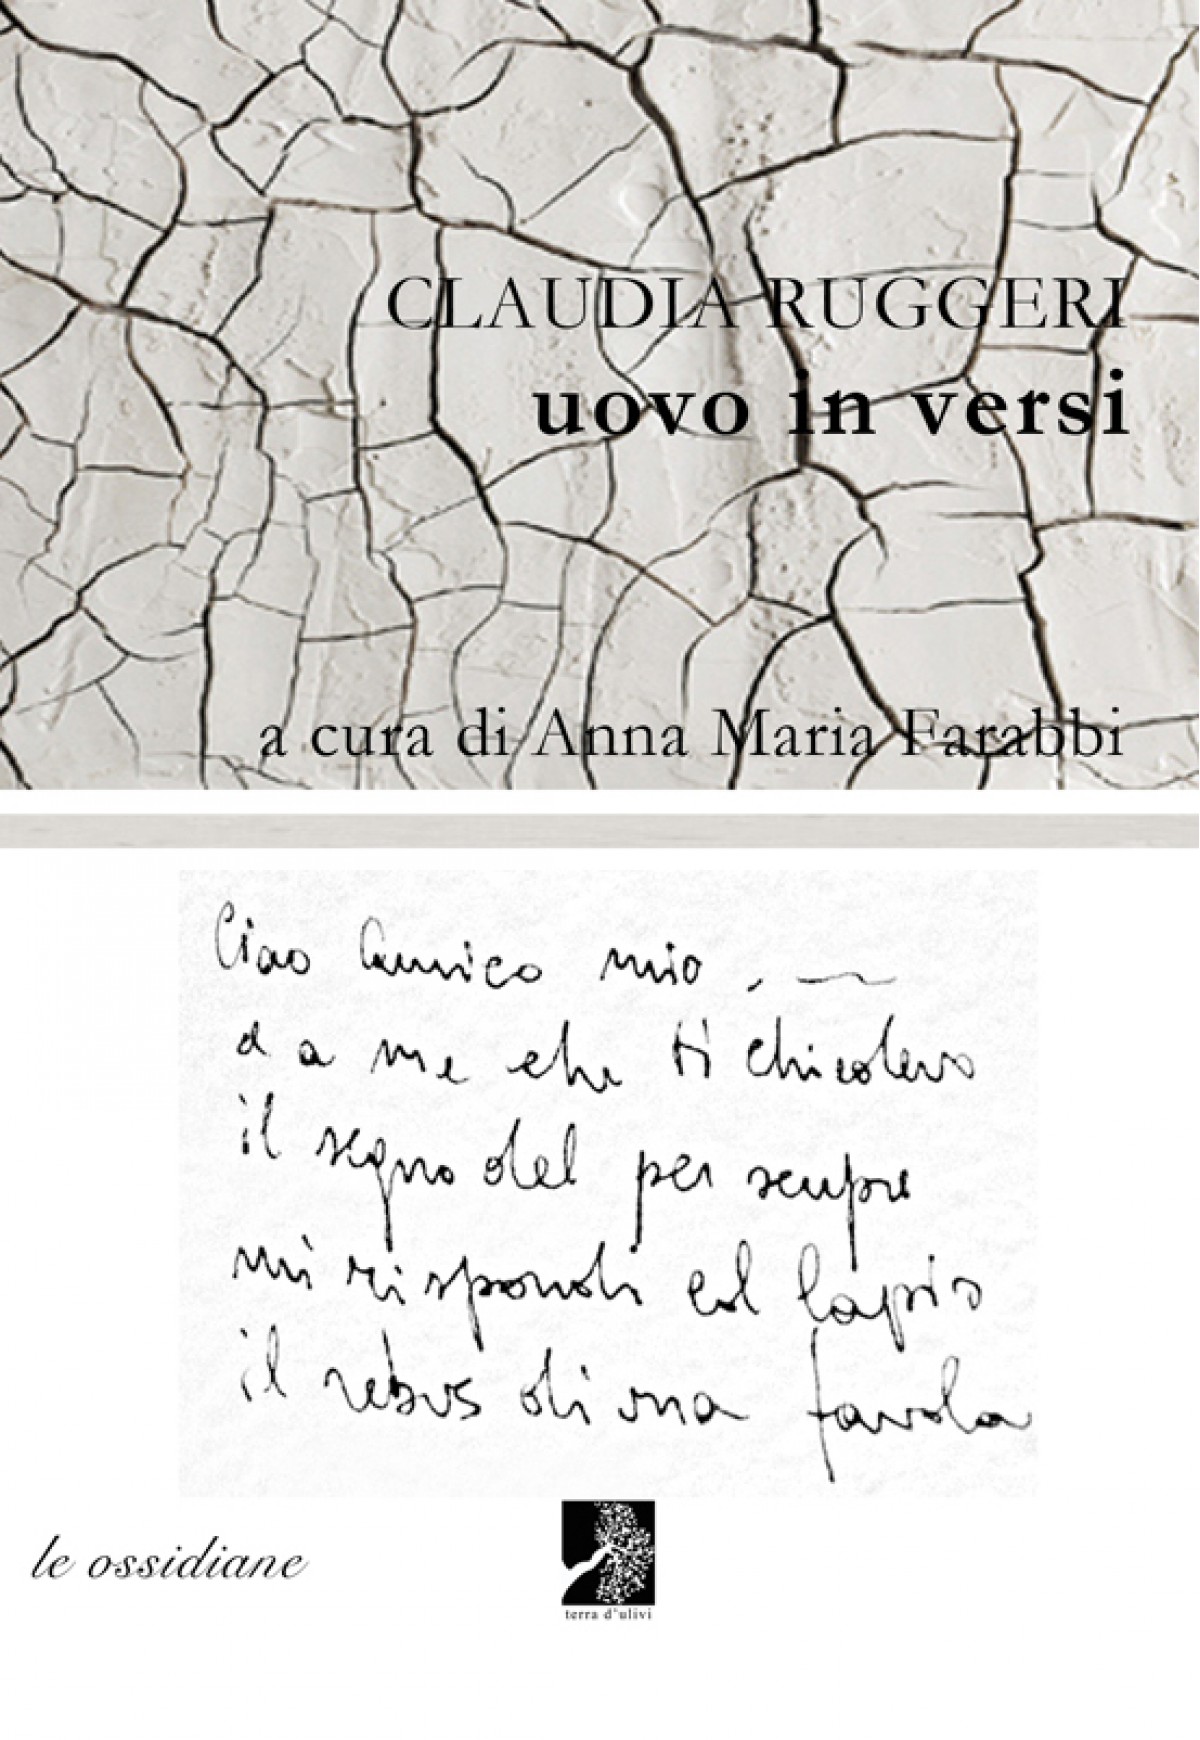 CLAUDIA RUGGERI
uovo in versi
a cura di Anna Maria Farabbi
Ciao Amico mio, ~
da me che ti chiedevo
il segno del per sempre
mi rispondi col lapis
il rebus di una favola
le ossidiane
terra d'ulivi